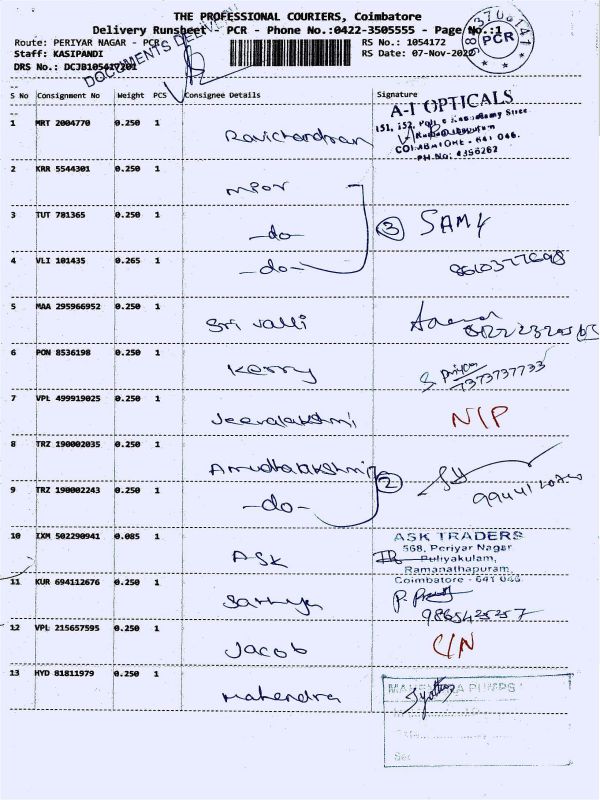 THE PROFESSIONAL COURIERS, Coimbatore
Delivery Runsheet - PCR - Phone No.:0422-3505555 - Page No.:1
Route: PERIYAR NAGAR - PCR
RS No.: 1054172
Staff: KASIPANDI
RS Date: 07-Nov-2022
DRS No.: DCJB105417201
DOCUMENTS DELIVERY
PCR
S No Consignment No Weight PCS Consignee Details Signature
1 MRT 2004770 0.250 1 Ravichandran
A-1 OPTICALS
151, 152,
Ramanathapuram
COIMBATORE - 641 045.
PH.No: 4356262
2 KRR 5544301 0.250 1 mpor
3 TUT 781365 0.250 1 -do- 3 SAMY
4 VLI 101435 0.265 1 -do- 8610377698
5 MAA 295966952 0.250 1 Sri valli
6 PON 8536198 0.250 1 Kerry
S. Priya
7373737733
7 VPL 499919025 0.250 1 Jeevalakshmi N/P
8 TRZ 190002035 0.250 1 Amudhalakshmi 2
9 TRZ 190002243 0.250 1 -do-
10 IXM 502290941 0.085 1 ASK
ASK TRADERS
568, Periyar Nagar
Puliyakulam,
Ramanathapuram,
Coimbatore - 641 045
11 KUR 694112676 0.250 1 Sathya
9865425257
12 VPL 215657595 0.250 1 Jacob C/N
13 HYD 81811979 0.250 1 Mahendra
MAHENDRA PUMPS